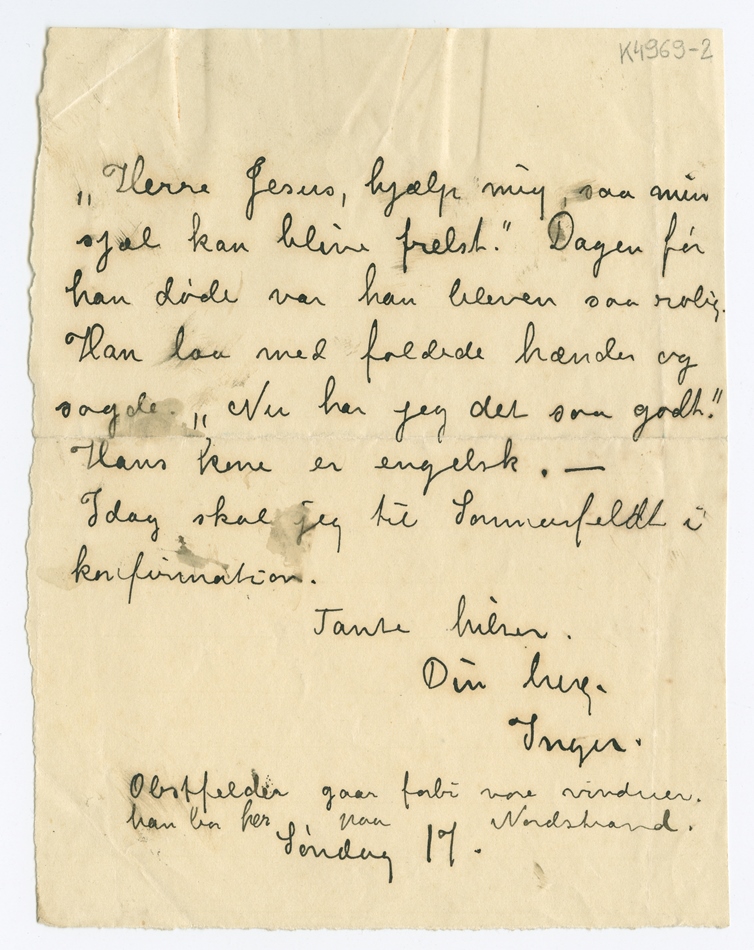 K4969-2
„Herre Jesus, hjælp mig, saa min
sjæl kan blive frelst." Dagen før
han døde var han bleven saa rolig.
Han laa med foldede hænder og
sagde. „Nu har jeg det saa godt."
Hans kone er engelsk. —
Idag skal jeg til Sommerfeldt i
konfirmation.
Tante hilser.
Din heng.
Inger.
Obstfelder gaar forbi vore vinduer.
han bor her paa Nordstrand.
Søndag 17.